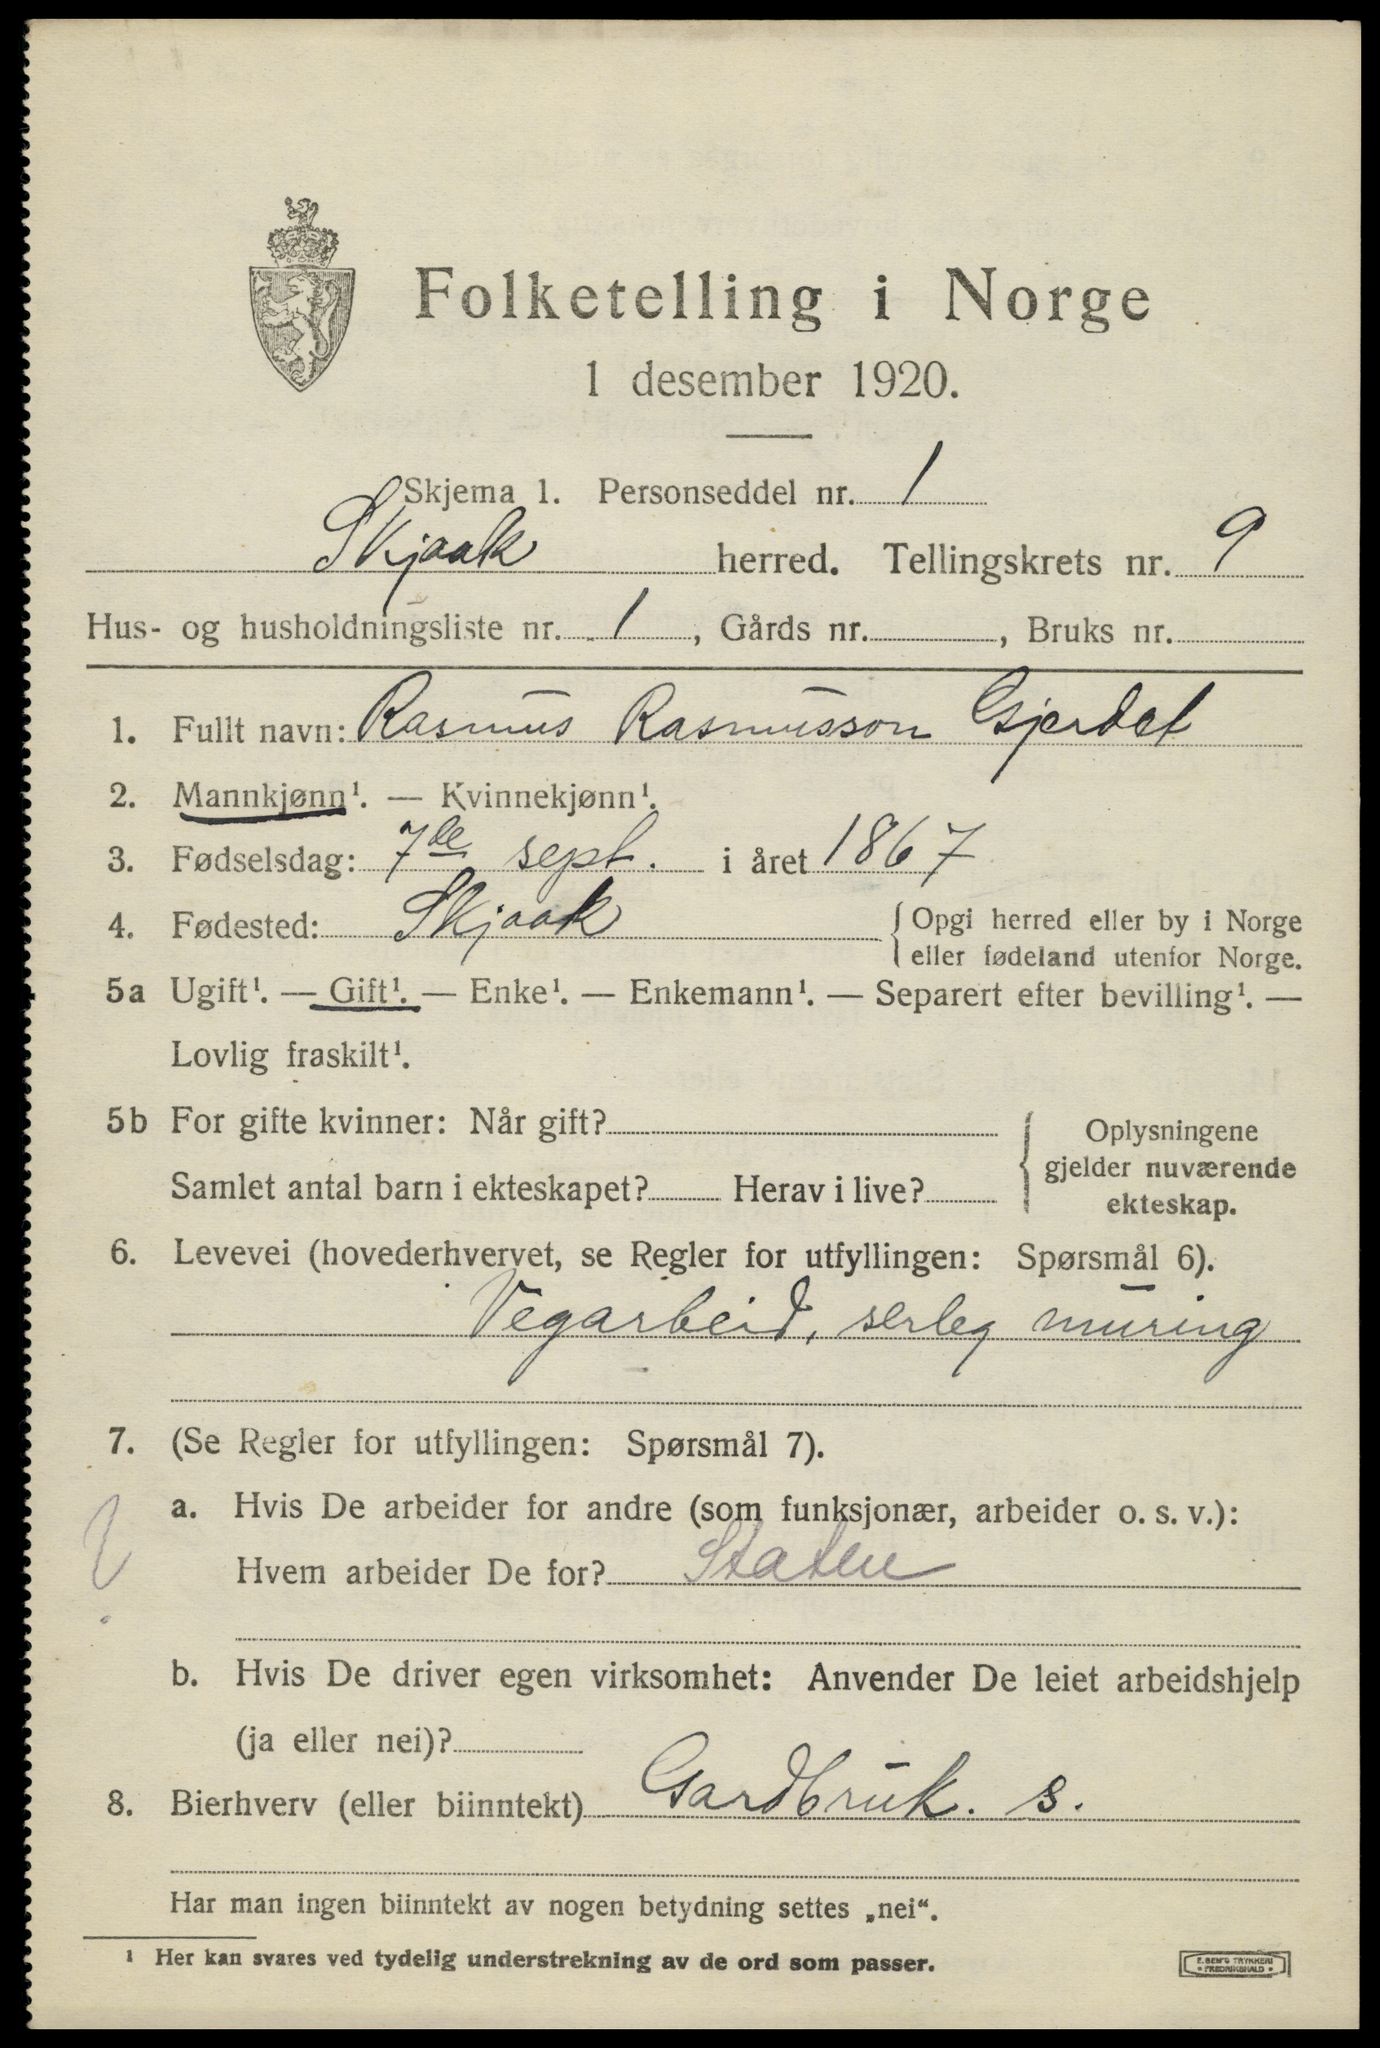 Folketelling i Norge
1 desember 1920.
Skjema 1. Personseddel nr. 1
Skjaak herred. Tellingskrets nr. 9
Hus- og husholdningsliste nr. 1, Gårds nr. , Bruks nr.
1. Fullt navn: Rasmus Rasmusson Gjerdet
2. Mannkjønn¹. — Kvinnekjønn¹.
3. Fødselsdag: 7de sept. i året 1867
4. Fødested: Skjaak { Opgi herred eller by i Norge
eller fødeland utenfor Norge.
5a Ugift¹. — Gift¹. — Enke¹. — Enkemann¹. — Separert efter bevilling¹. —
Lovlig fraskilt¹.
5b For gifte kvinner: Når gift? { Oplysningene
gjelder nuværende
Samlet antal barn i ekteskapet? Herav i live?
ekteskap.
6. Levevei (hovederhvervet, se Regler for utfyllingen: Spørsmål 6).
Vegarbeid, serleg muring
7. (Se Regler for utfyllingen: Spørsmål 7).
a. Hvis De arbeider for andre (som funksjonær, arbeider o. s. v.):
Hvem arbeider De for? Staten
b. Hvis De driver egen virksomhet: Anvender De leiet arbeidshjelp
(ja eller nei)?
8. Bierhverv (eller biinntekt) Gardbruk. s.
Har man ingen biinntekt av nogen betydning settes „nei“.
¹ Her kan svares ved tydelig understrekning av de ord som passer.
FREDRIKSHALD